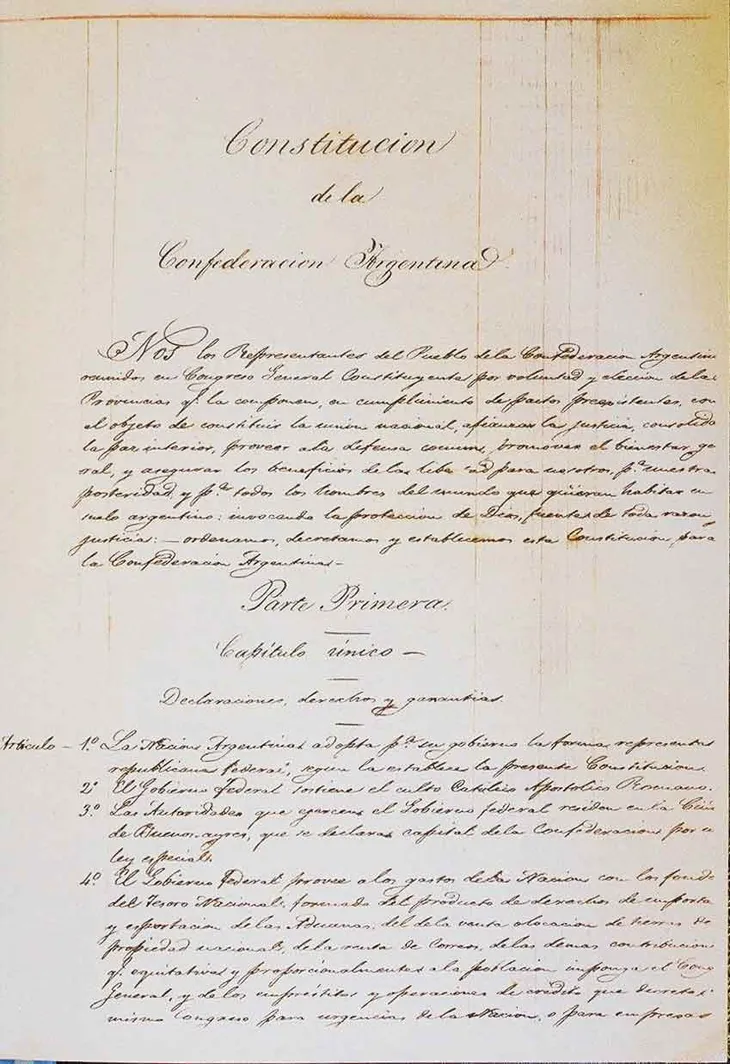 Constitucion
de la
Confederacion Argentina
Nos los Representantes del Pueblo de la Confederacion Argentin
reunidos en Congreso General Constituyente por voluntad y eleccion de las
Provincias q.ᵉ la componen, en cumplimiento de pactos preexistentes, con
el objeto de constituir la union nacional, afianzar la justicia, consolida
la paz interior, proveer a la defensa comun, promover el bienestar ge
ral, y asegurar los beneficios de la libe ad para nosotros, p.ᵃ nuestra
posteridad, y p.ᵃ todos los hombres del mundo que quieran habitar en
suelo argentino: invocando la proteccion de Dios, fuente de toda razon y
justicia: — ordenamos, decretamos y establecemos esta Constitucion, para
la Confederacion Argentina —
Parte Primera.
Capítulo único —
Declaraciones, derechos y garantias.
Articulo — 1.º La Nacion Argentina adopta p.ᵃ su gobierno la forma representat
republicana federal, segun la establece la presente Constitucion.
2.º El Gobierno federal sostiene el culto Católico Apostólico Romano.
3.º Las Autoridades que ejercen el Gobierno federal residen en la Ciu
de Buenos-ayres, que se declara capital de la Confederacion por u
ley especial.
4.º El Gobierno Federal provee a los gastos de la Nacion con los fondo
del Tesoro Nacional, formado del producto de derechos de importa
y esportacion de las Aduanas, del de la venta o locacion de tierras de
propiedad nacional, de la renta de Correos, de las demas contribucion
q.ᵉ equitativa y proporcionalmente a la poblacion imponga el Cong
General, y de los empréstitos y operaciones de crédito que decrete
mismo Congreso para urgencias de la Nacion, o para empresas